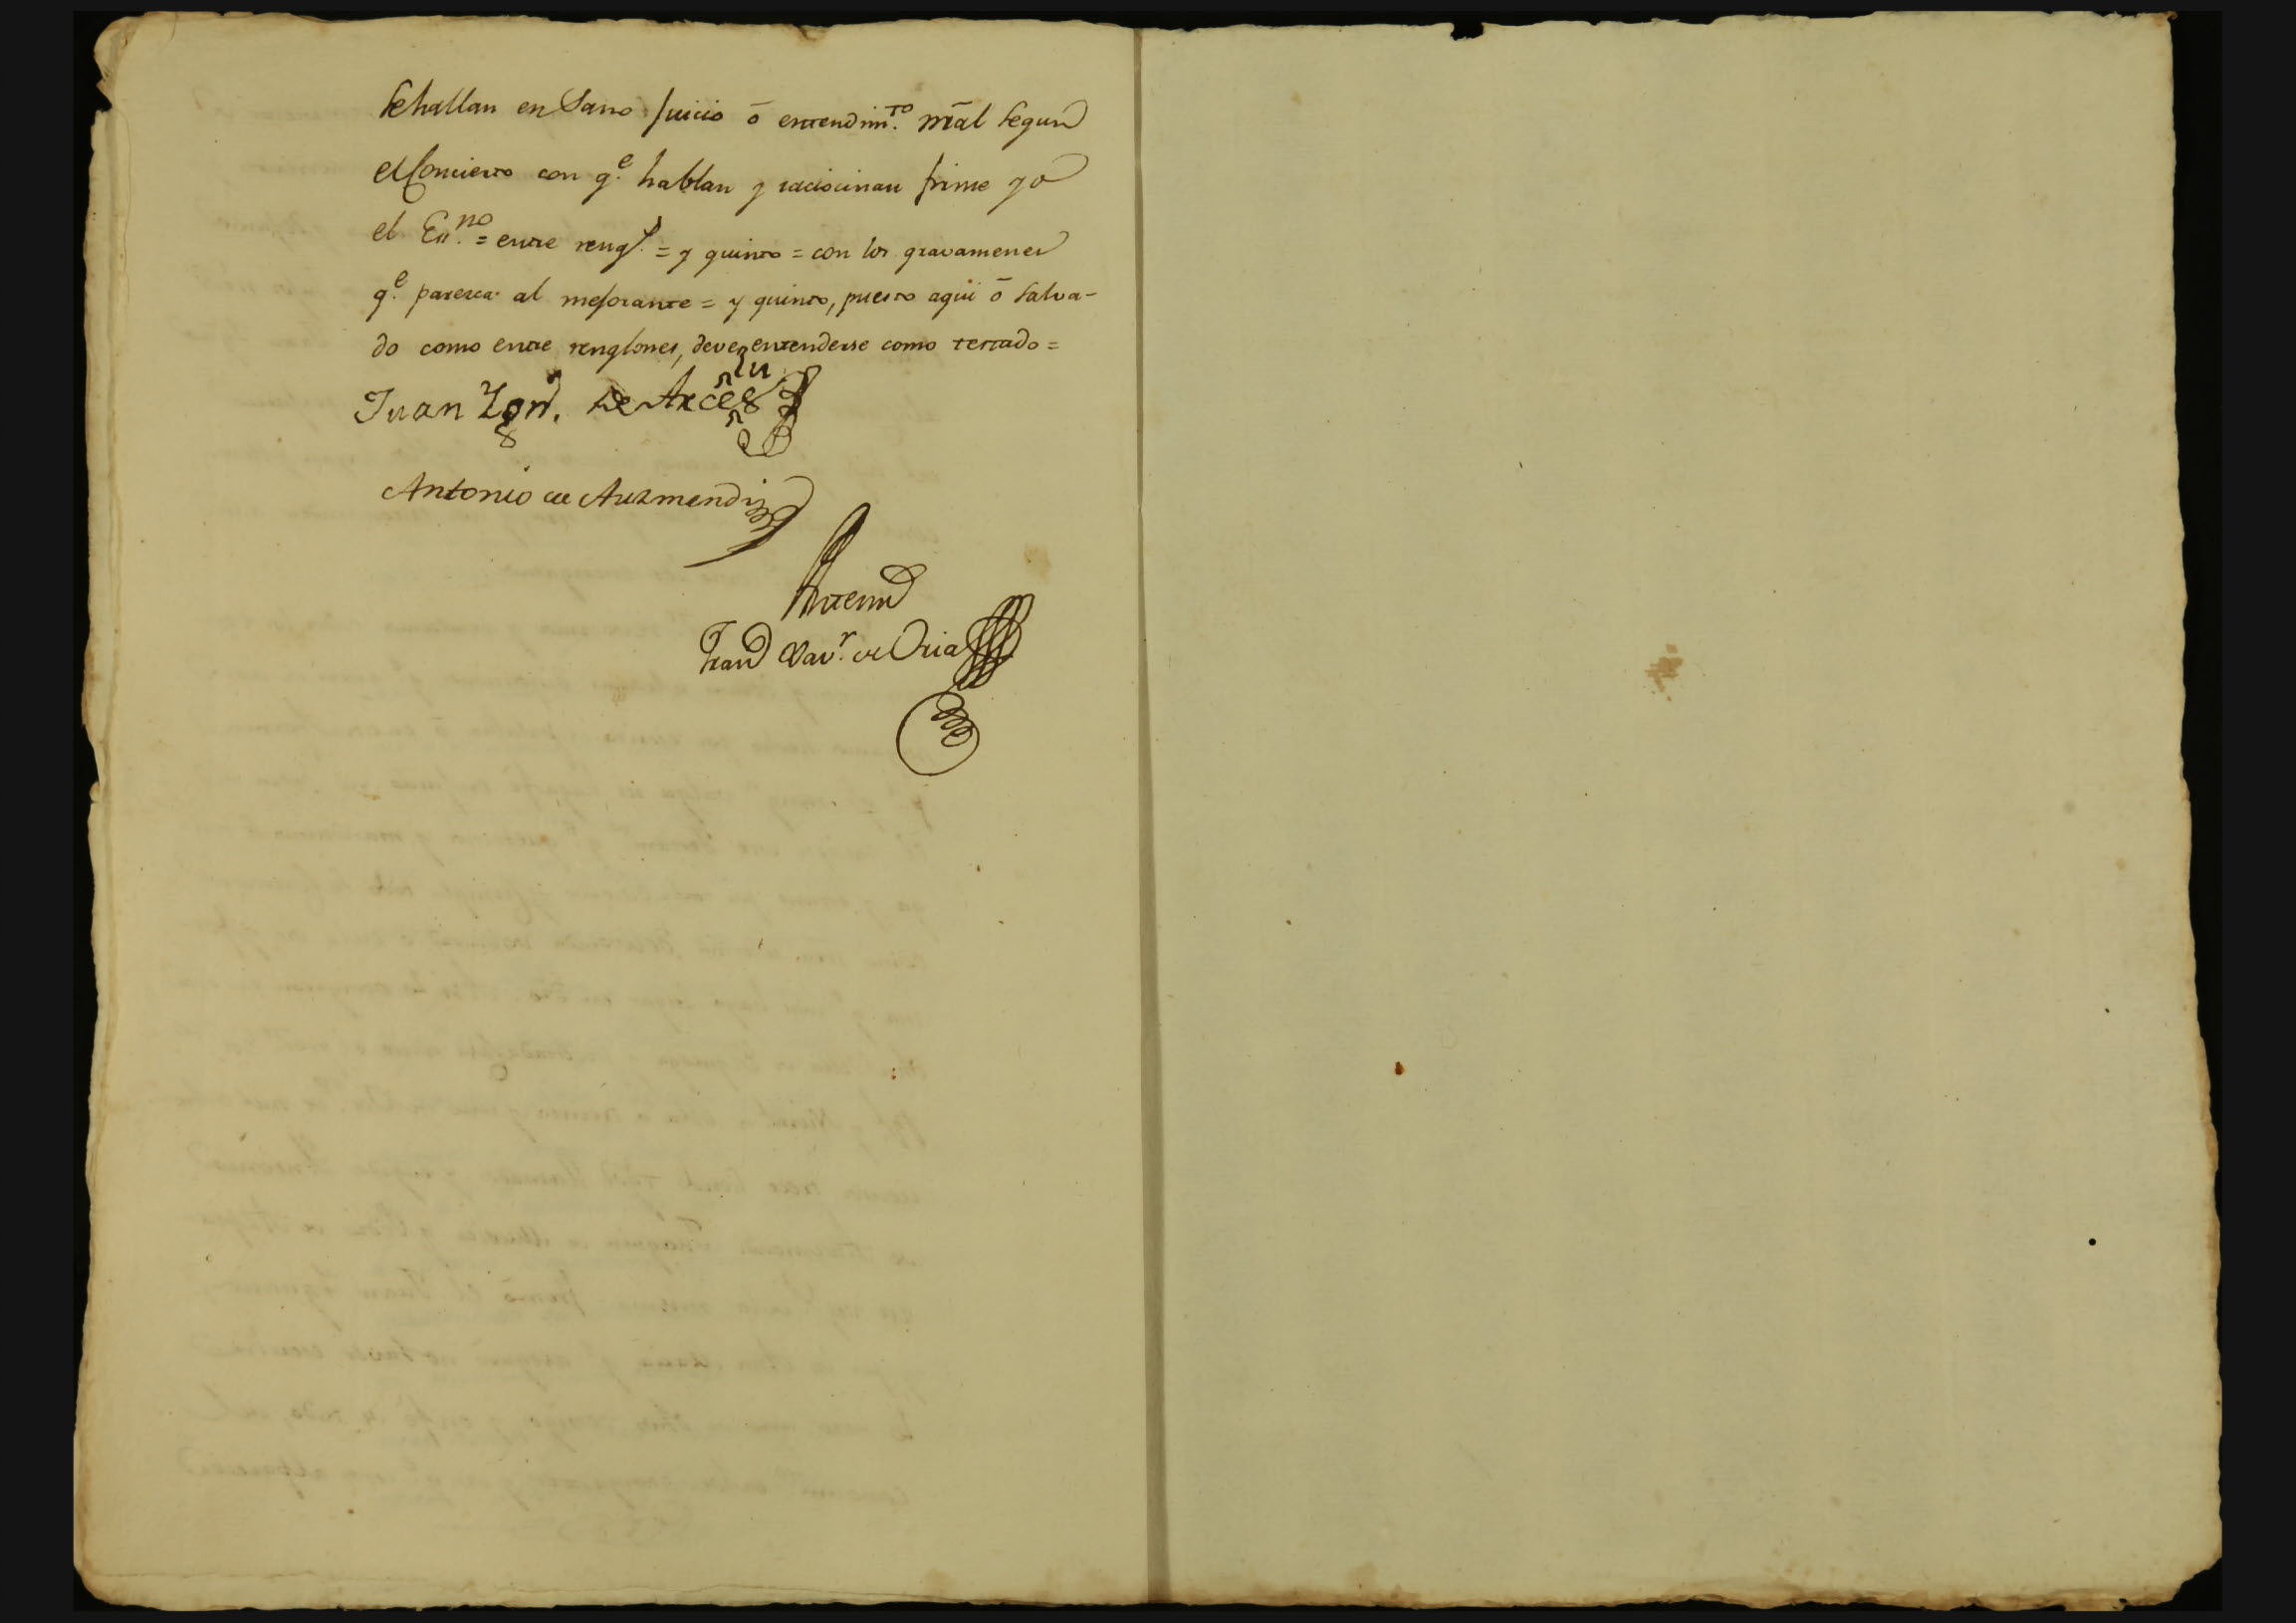 se hallan en Sano Juicio ó entendim.to nral segun
el Concierto con q.e hablan y raciocinan firme yo
el Es.no = entre rengl.s = y quinto = con los gravamenes
q.e paresca al mejorante = y quinto, puesto aqui ó salva-
do como entre renglones, deve entenderse como testado =
Juan Ign. de Arce
Antonio de Auzmendi
Antemi
Fran.co Xav.r de Oria